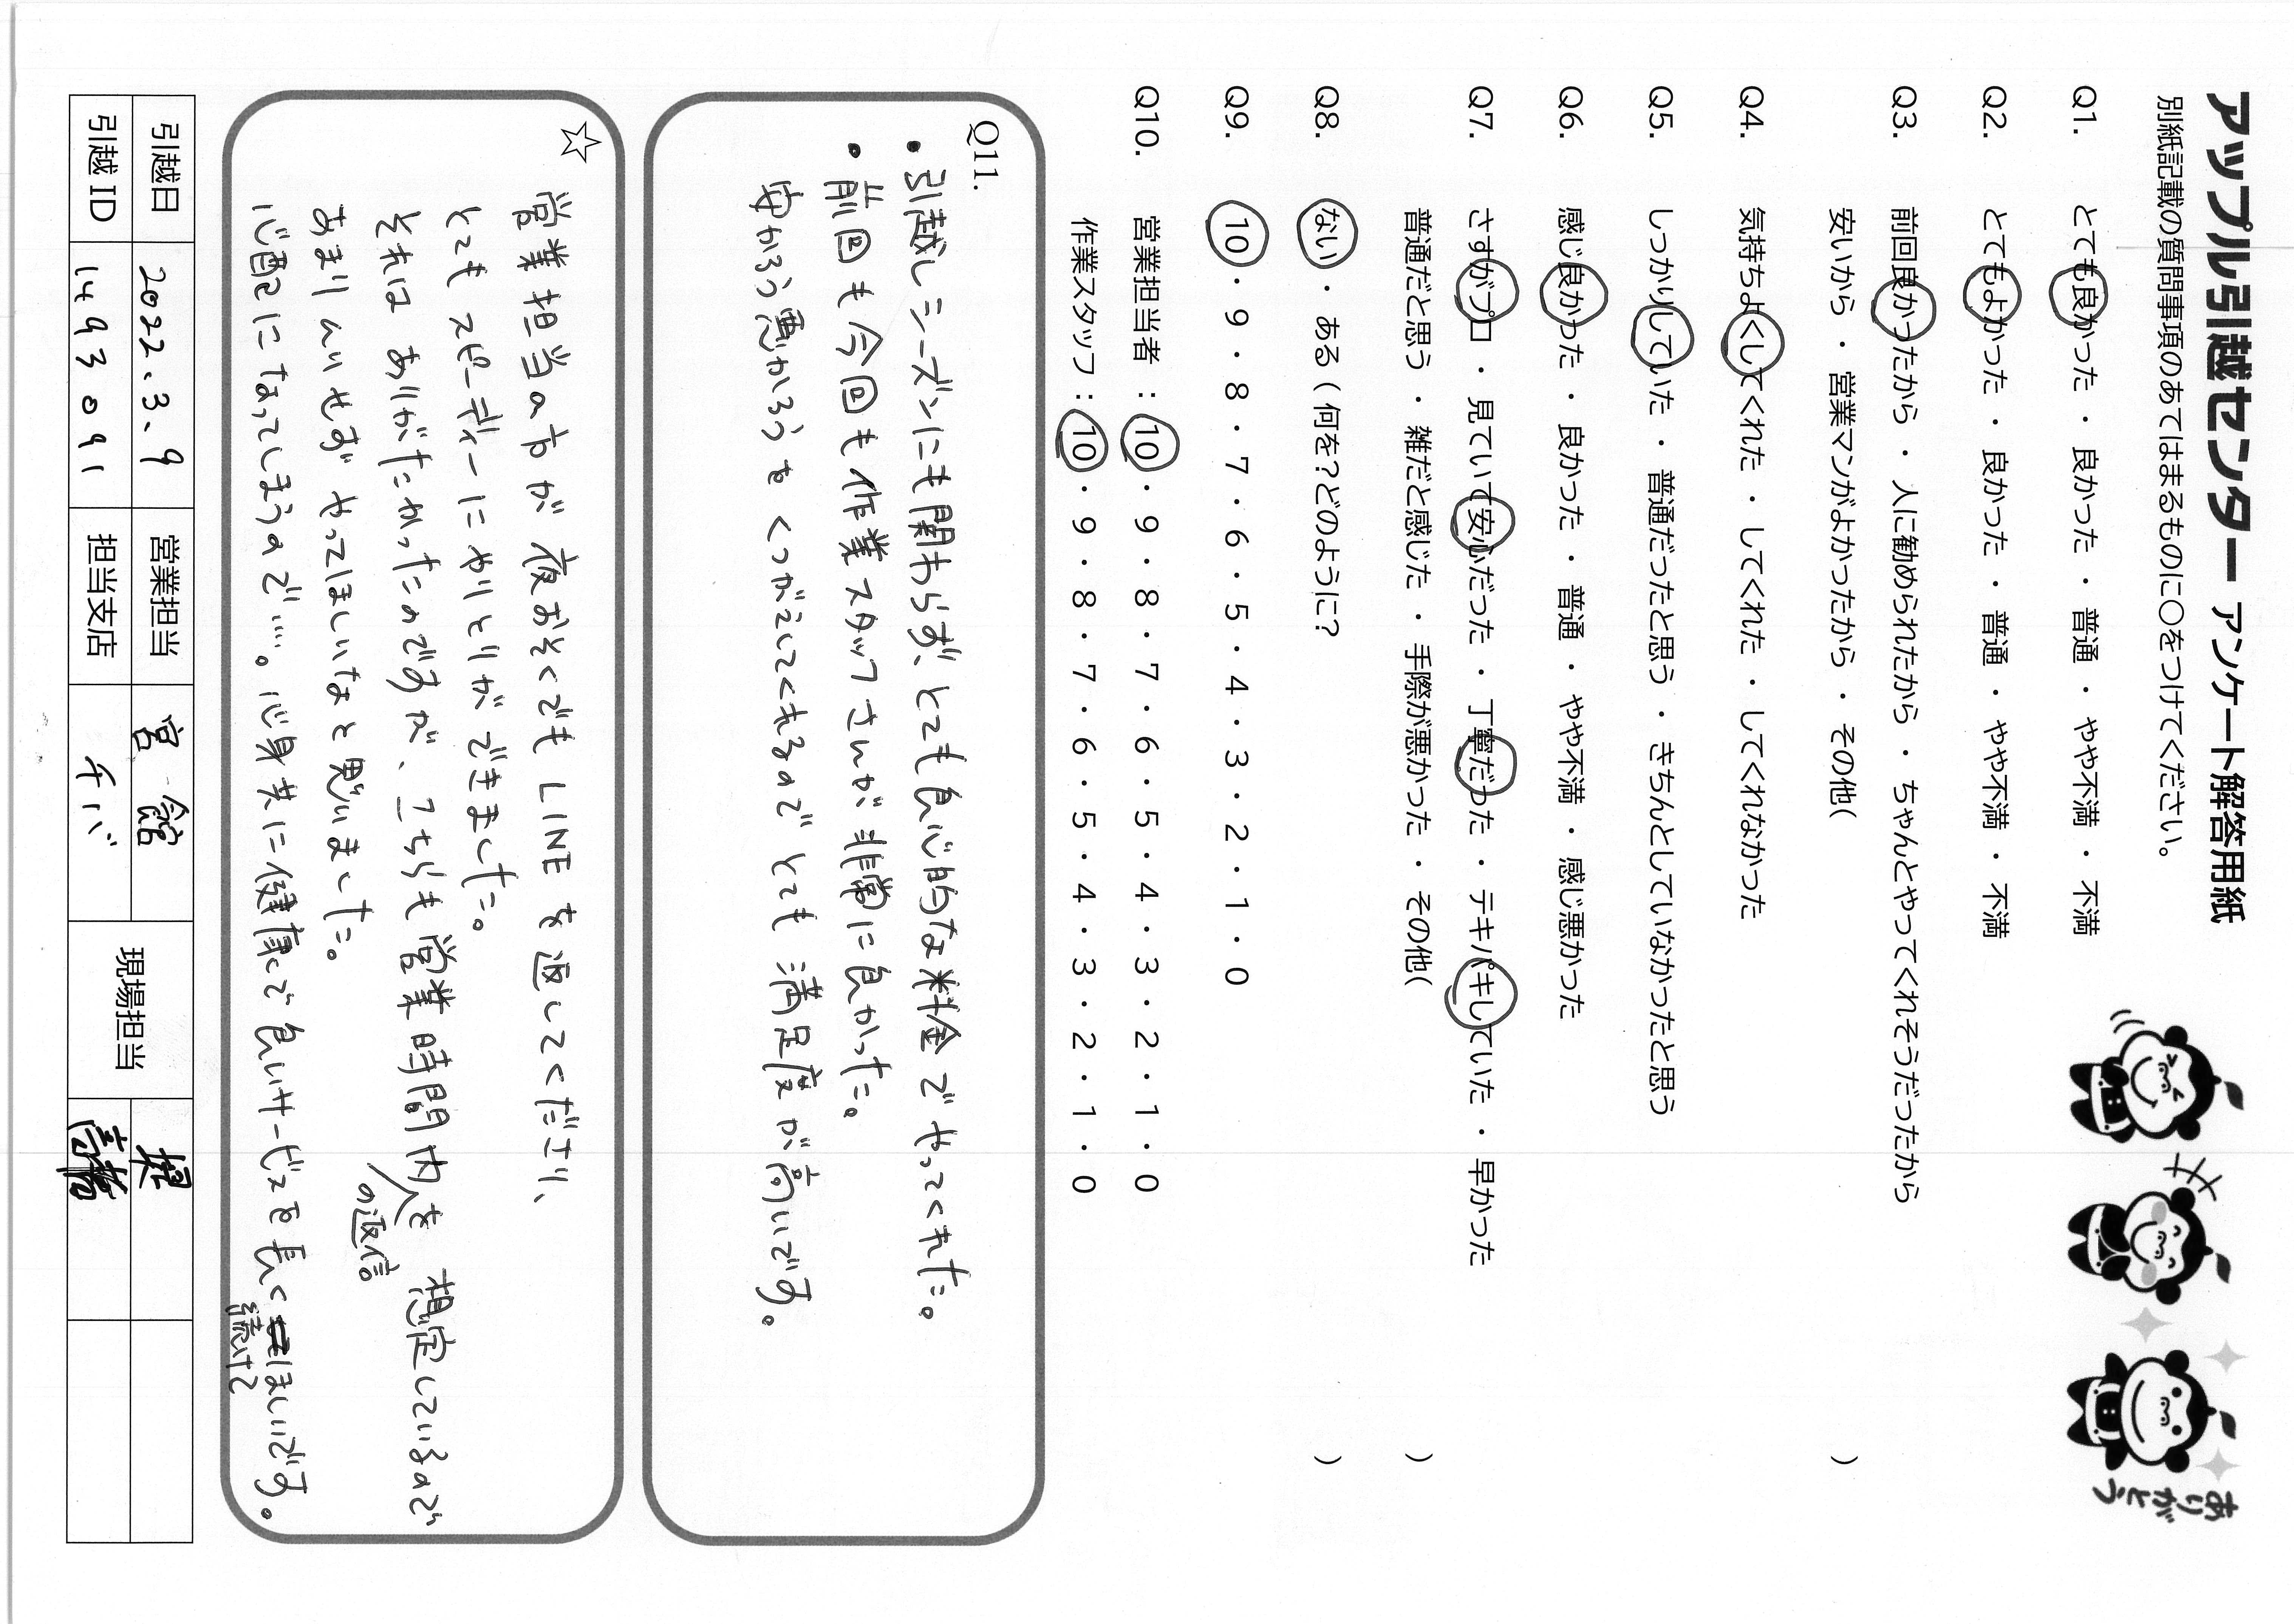 アップル引越センター アンケート解答用紙
別紙記載の質問事項のあてはまるものに○をつけてください。
Q1. とても良かった ・ 良かった ・ 普通 ・ やや不満 ・ 不満
Q2. とてもよかった ・ 良かった ・ 普通 ・ やや不満 ・ 不満
Q3. 前回良かったから ・ 人に勧められたから ・ ちゃんとやってくれそうだったから
安いから ・ 営業マンがよかったから ・ その他( )
Q4. 気持ちよくしてくれた ・ してくれた ・ してくれなかった
Q5. しっかりしていた ・ 普通だったと思う ・ きちんとしていなかったと思う
Q6. 感じ良かった ・ 良かった ・ 普通 ・ やや不満 ・ 感じ悪かった
Q7. さすがプロ ・ 見ていて安心だった ・ 丁寧だった ・ テキパキしていた ・ 早かった
普通だと思う ・ 雑だと感じた ・ 手際が悪かった ・ その他( )
Q8. ない ・ ある ( 何を?どのように? )
Q9. 10 ・ 9 ・ 8 ・ 7 ・ 6 ・ 5 ・ 4 ・ 3 ・ 2 ・ 1 ・ 0
Q10. 営業担当者 : 10 ・ 9 ・ 8 ・ 7 ・ 6 ・ 5 ・ 4 ・ 3 ・ 2 ・ 1 ・ 0
作業スタッフ : 10 ・ 9 ・ 8 ・ 7 ・ 6 ・ 5 ・ 4 ・ 3 ・ 2 ・ 1 ・ 0
ありがとう
Q11.
・引越しシーズンにも関わらず、とても良心的な料金でやってくれた。
・前回も今回も作業スタッフさんが非常に良かった。
安かろう悪かろうを くつがえしてくれるので とても 満足度が高いです。
☆
営業担当の方が 夜おそくでも LINE を返してくださり、
とても スピーディーに やりとりが できました。
それは ありがたかったのですが、こちらも 営業時間内の返信を 想定しているので
あまり ムリせず やってほしいなと思いました。
心配になってしまうので…。心身共に健康で良いサービスを長く続けてほしいです。
引越日 2022.3.9 営業担当 宮舘 現場担当
引越 ID 1493091 担当支店 チバ